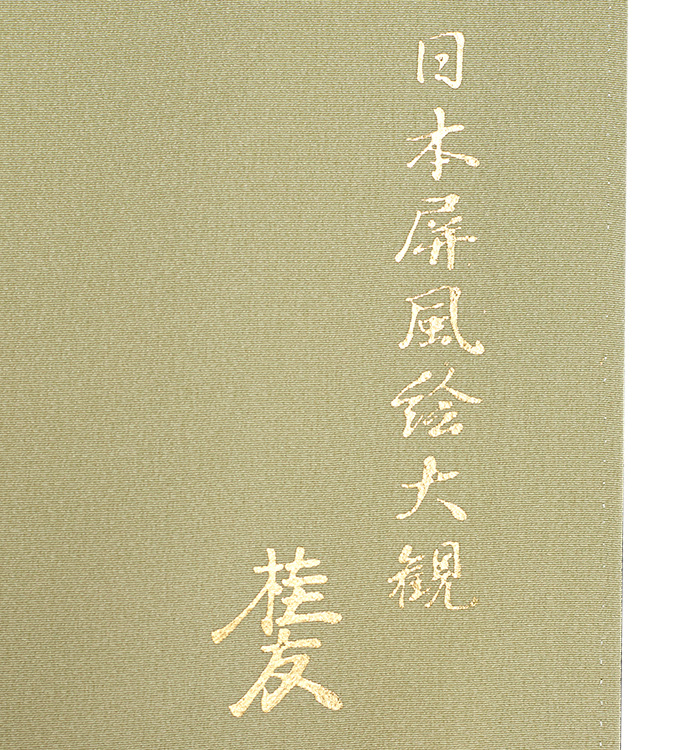 日本屏風絵大観
桂友